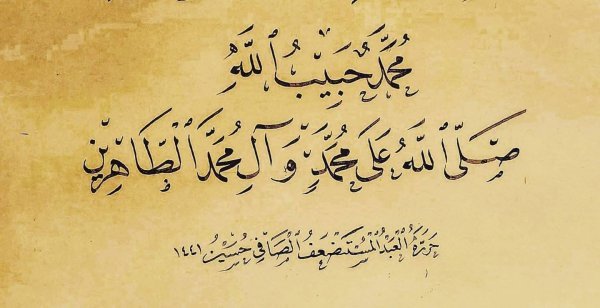 مُحَمَّدٌ حَبِيبُ ٱللَّهِ
صَلَّى ٱللَّهُ عَلَىٰ مُحَمَّدٍ وَآلِ مُحَمَّدٍ ٱلطَّاهِرِينَ
حَرَّرَهُ ٱلْعَبْدُ ٱلْمُسْتَضْعَفُ ٱلصَّافِي حُسَيْنُ ١٤٤١